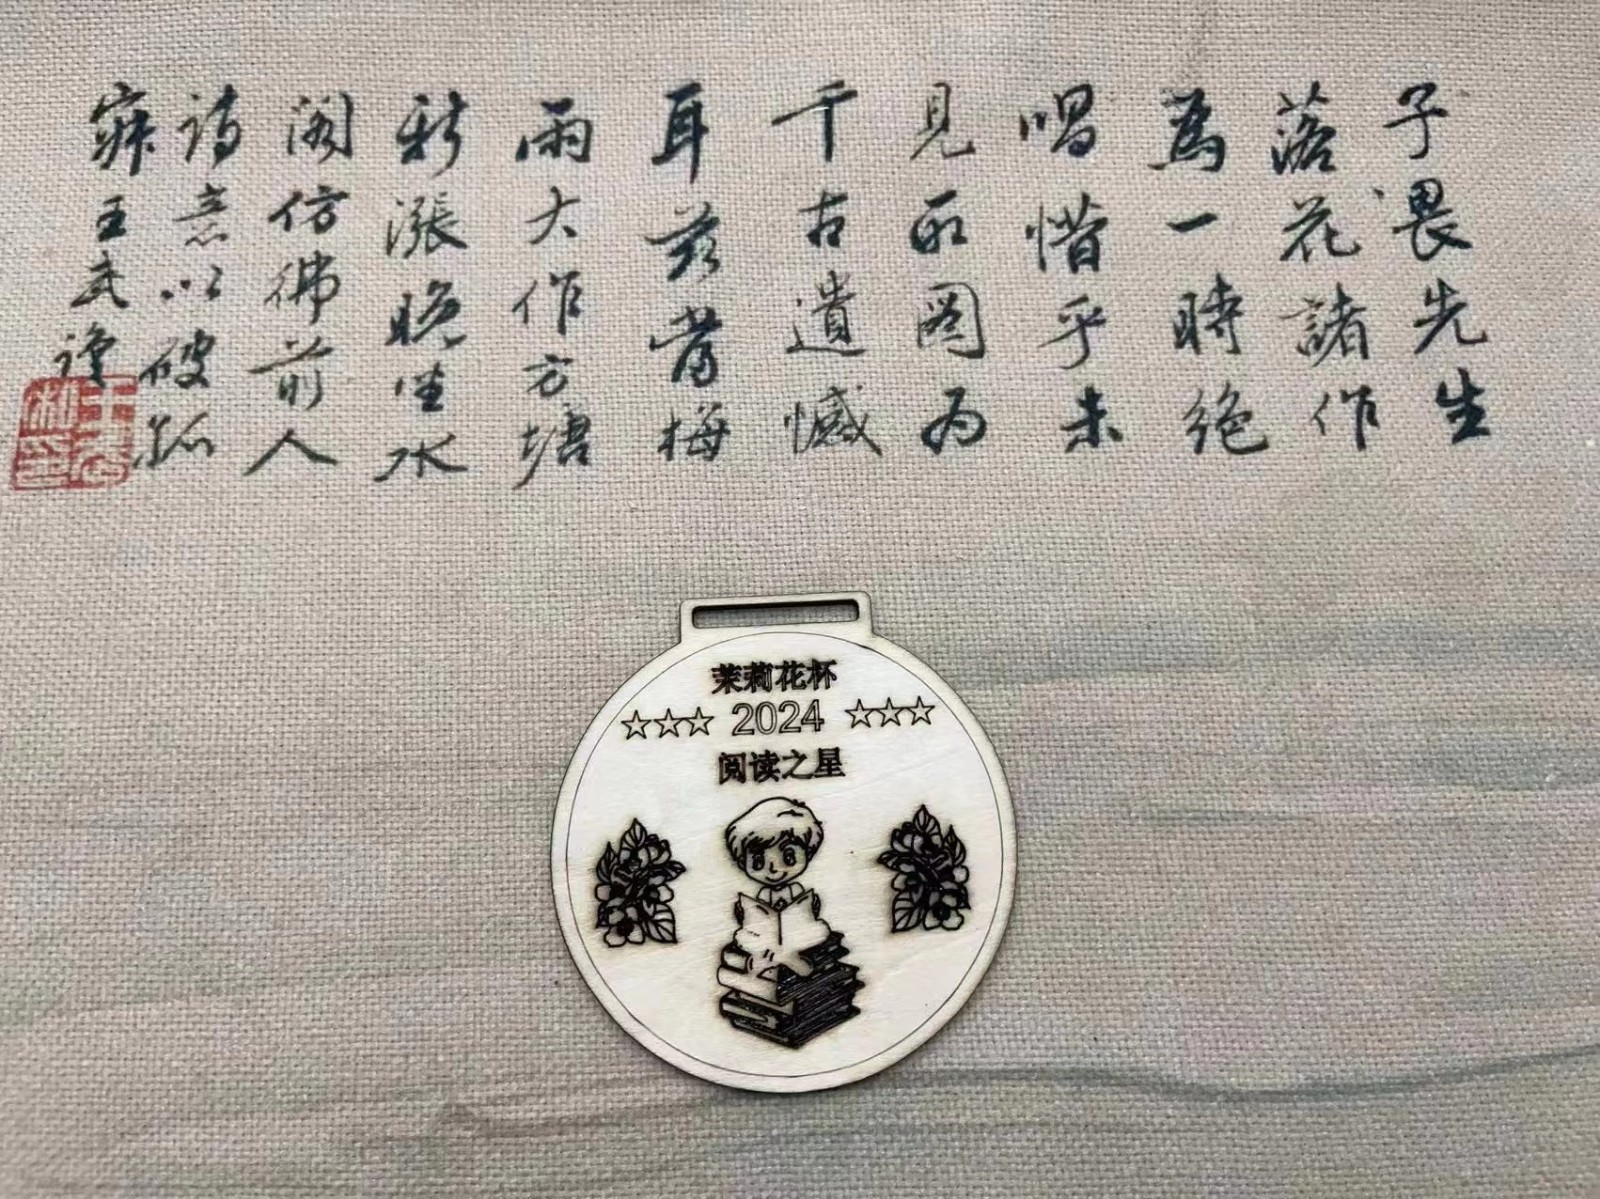 子畏先生
落花諸作
為一時絕
唱惜乎未
見所圖為
千古遺憾
耳茲當梅
雨大作方塘
新漲晚坐水
閣仿彿前人
詩意以破孤
寂王武
茉莉花杯
☆☆☆ 2024 ☆☆☆
阅读之星